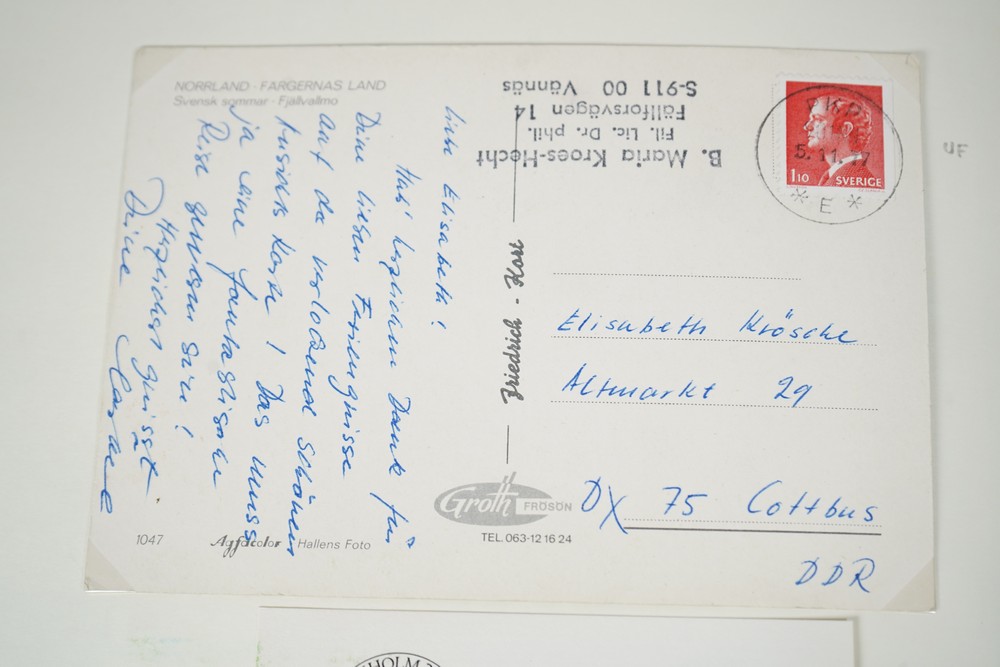 NORRLAND - FÄRGERNAS LAND
Svensk sommar - Fjällvallmo
liebe Elisabeth!
Hab' herzlichen Dank für
Deine lieben Feriengrüsse
auf der verlockend schönen
Karte! Das muss
ja eine fantastische
Reise gewesen sein!
Herzlichst grüsst
Deine
B. Maria Kroes-Hecht
Fil. Lic. Dr. phil.
Fällforsvägen 14
S-911 00 Vännäs
5.11.77
E
1.10
SVERIGE
Friedrich - Kort
Elisabeth Krösche
Altmarkt 29
DX 75 Cottbus
DDR
Groth
FRÖSÖN
TEL. 063-12 16 24
1047 Agfacolor Hallens Foto